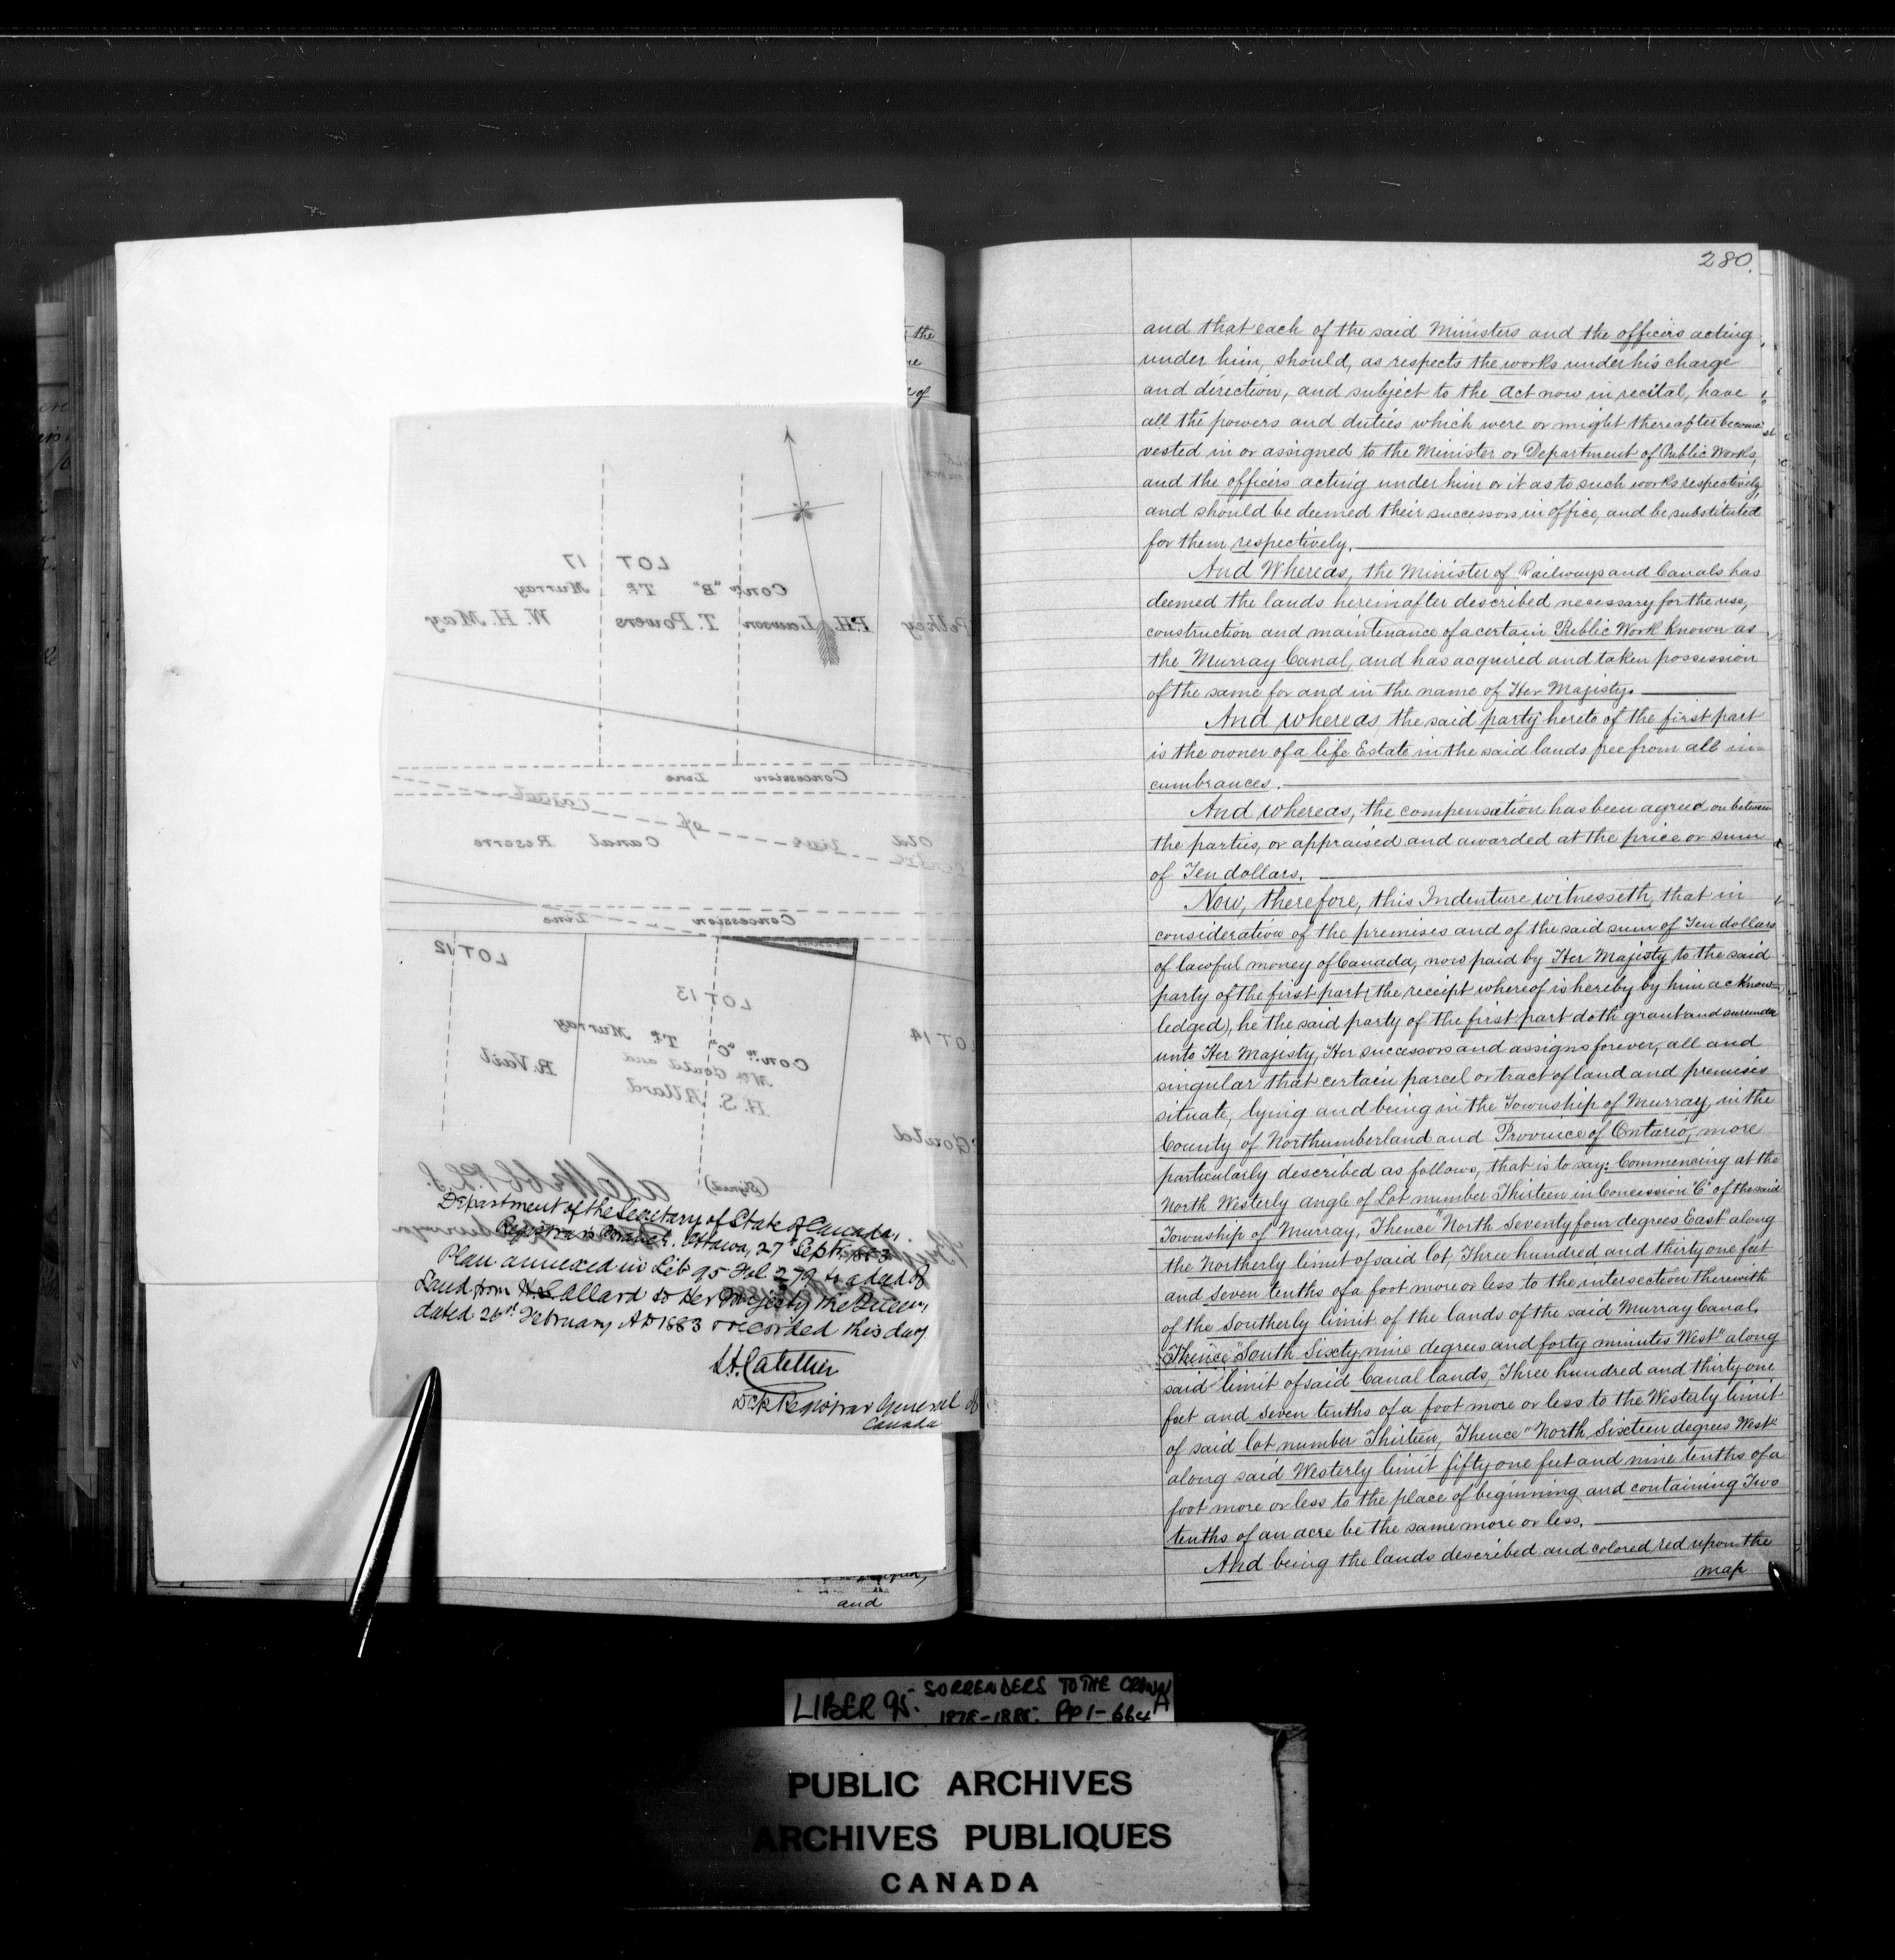 the
of
LOT 17
Con "B" Tp Murray
W. H. May
T. Powers
P.H. Lawson
Pelkey
Concession Line
Old line of Canal
Canal Reserve
Concession Line
LOT 12
LOT 13
LOT 14
Con "C" Tp Murray
Wm Gould and
H. S. Allard
R. Vail
Gould
(Signed)
Department of the Secretary of State of Canada,
Registrar's Branch. Ottawa, 27th Sept. 1883
Plan annexed in Lib 95 Fol 279 to a deed of
Land from H.S. Allard to Her Majesty the Queen,
dated 26th February AD 1883 & recorded this day.
L.A. Catellier
Dep. Registrar General of
Canada
and
280.
and that each of the said Ministers and the officers acting
under him, should, as respects the works under his charge
and direction, and subject to the Act now in recital, have
all the powers and duties which were or might thereafter become
vested in or assigned to the Minister or Department of Public Works,
and the officers acting under him or it as to such works respectively,
and should be deemed their successors in office, and be substituted
for them respectively.
And Whereas, the Minister of Railways and Canals has
deemed the lands hereinafter described necessary for the use,
construction and maintenance of a certain Public Work known as
the Murray Canal, and has acquired and taken possession
of the same for and in the name of Her Majesty.
And whereas the said party hereto of the first part
is the owner of a life Estate in the said lands free from all in=
cumbrances.
And whereas, the compensation has been agreed on between
the parties, or appraised and awarded at the price or sum
of Ten dollars.
Now, therefore, this Indenture witnesseth, that in
consideration of the premises and of the said sum of Ten dollars
of lawful money of Canada, now paid by Her Majesty to the said
party of the first part (the receipt whereof is hereby by him acknow=
ledged), he the said party of the first part doth grant and surrender
unto Her Majesty, Her successors and assigns forever, all and
singular that certain parcel or tract of land and premises
situate, lying and being in the Township of Murray, in the
County of Northumberland and Province of Ontario, more
particularly described as follows, that is to say: Commencing at the
North Westerly angle of Lot number Thirteen in Concession "C" of the said
Township of Murray, Thence "North Seventy four degrees East" along
the Northerly limit of said lot, Three hundred and thirty one feet
and seven tenths of a foot more or less to the intersection therewith
of the Southerly limit of the lands of the said Murray Canal,
Thence "South Sixty nine degrees and forty minutes West" along
said limit of said Canal lands, Three hundred and thirty one
feet and seven tenths of a foot more or less to the Westerly limit
of said lot number Thirteen, Thence "North Sixteen degrees West"
along said Westerly limit fifty one feet and nine tenths of a
foot more or less to the place of beginning and containing Two
tenths of an acre be the same more or less.
And being the lands described and colored red upon the
map
LIBER 95. SURRENDERS TO THE CROWN
1878-1885. PP 1-664A
PUBLIC ARCHIVES
ARCHIVES PUBLIQUES
CANADA